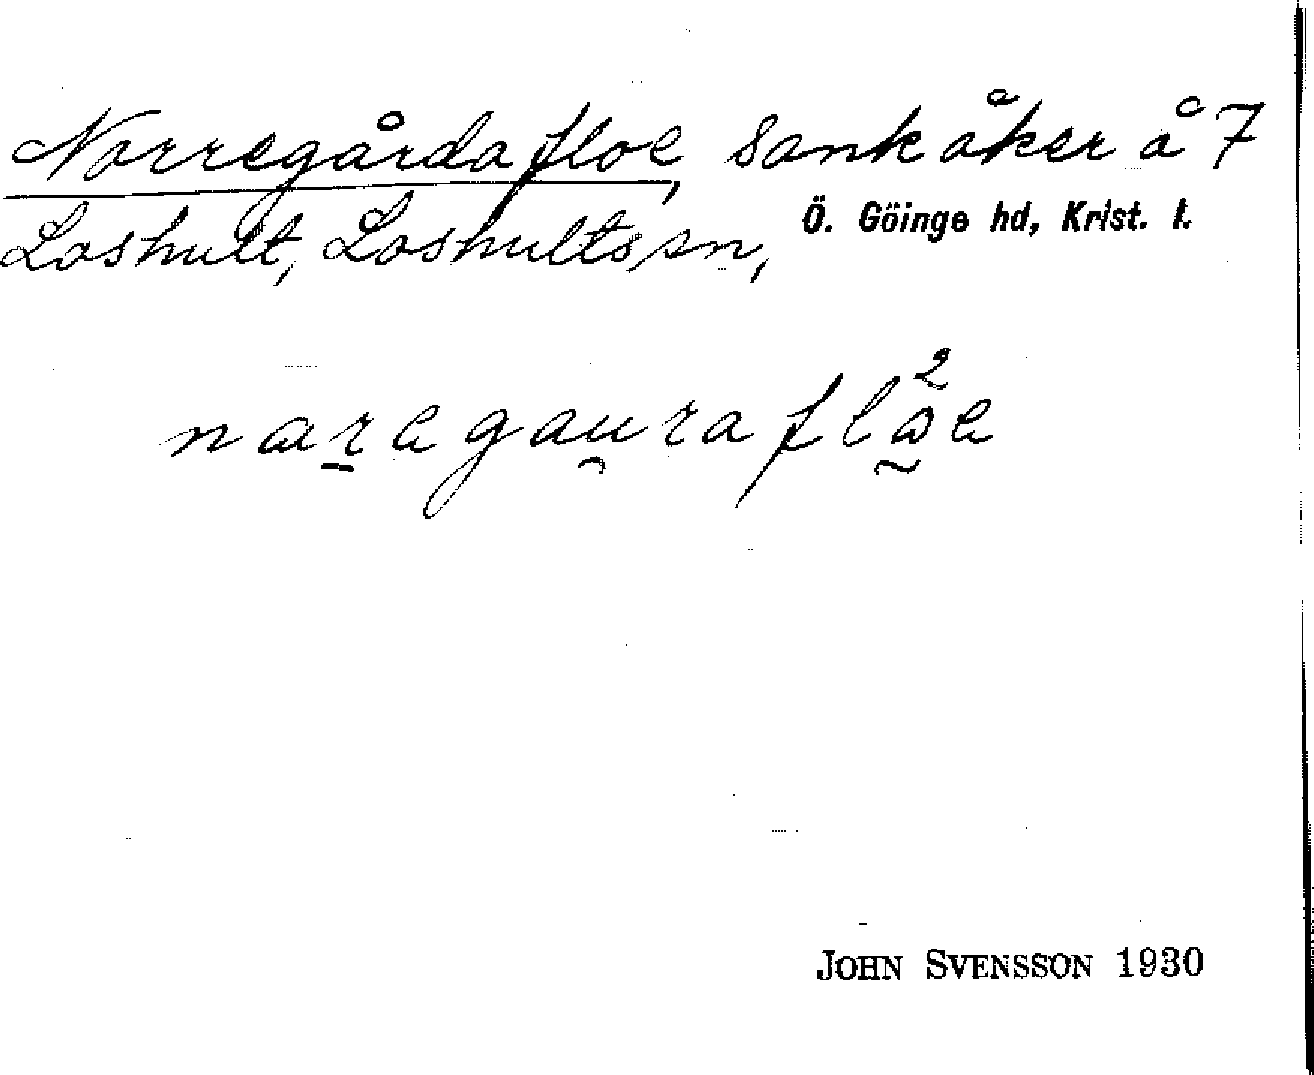 Norregårdafloe, sank åker å 7
Loshult, Loshults sn, Ö. Göinge hd, Krist. l.
naregaurafloe
JOHN SVENSSON 1930